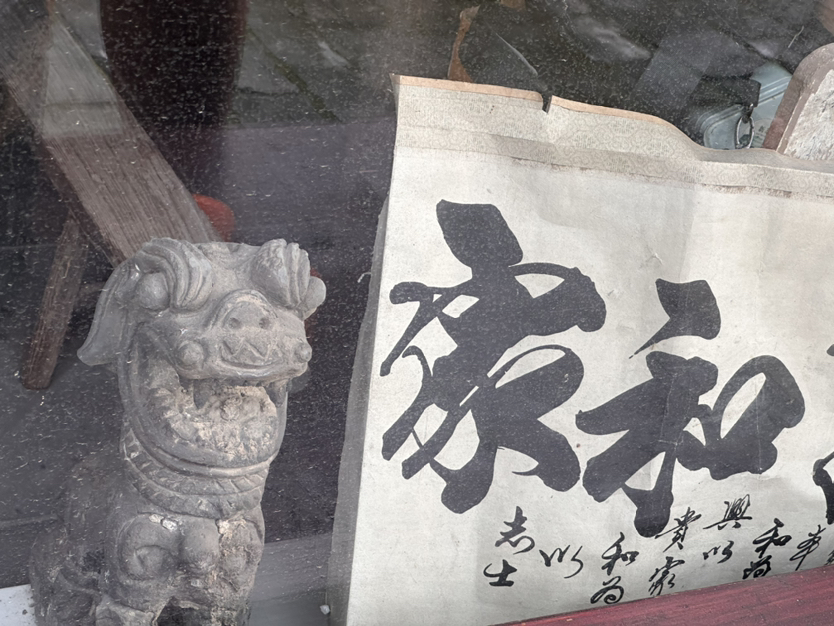 家和
志士
以
和為
貴家
興以
和為